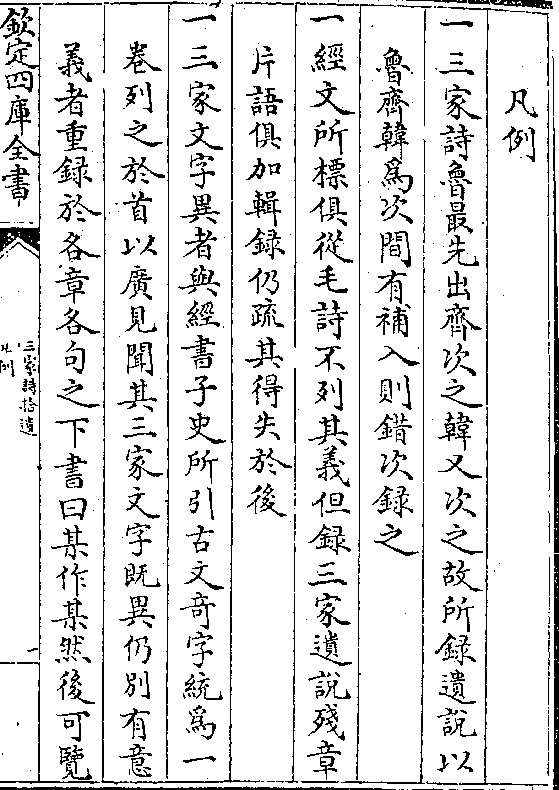 凡例
一三家詩魯最先出齊次之韓又次之故所録遺說以
魯齊韓爲次間有補入則錯次録之
一經文所標俱從毛詩不列其義但録三家遺說殘章
片語俱加輯録仍疏其得失於後
一三家文字異者與經書子史所引古文奇字統爲一
卷列之於首以廣見聞其三家文字既異仍別有意
義者重録於各章各句之下書曰某作某然後可覽
欽定四庫全書
三家詩拾遺
凡例
一